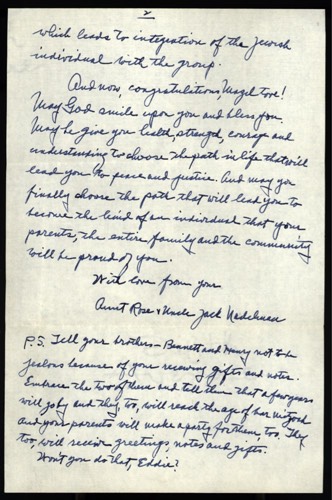 2
which leads to integration of the Jewish
individual with the group.
And now, congratulations, Mazel tov!
May God smile upon you and bless you.
May he give you health, strength, courage and
understanding to choose the path in life that will
lead you to peace and justice. And may you
finally choose the path that will lead you to
become the kind of an individual that your
parents, the entire family and the community
will be proud of you.
With love from your
Aunt Rose & Uncle Jack
P.S. Tell your brothers - Bennett and Henry not to be
jealous because of your receiving gifts and notes.
Embrace the two of them and tell them that a few years
will go by and they, too, will reach the age of bar mitzvah
and your parents will make a party for them, too. They
too, will receive greetings, notes and gifts.
Won't you do that, Eddie?